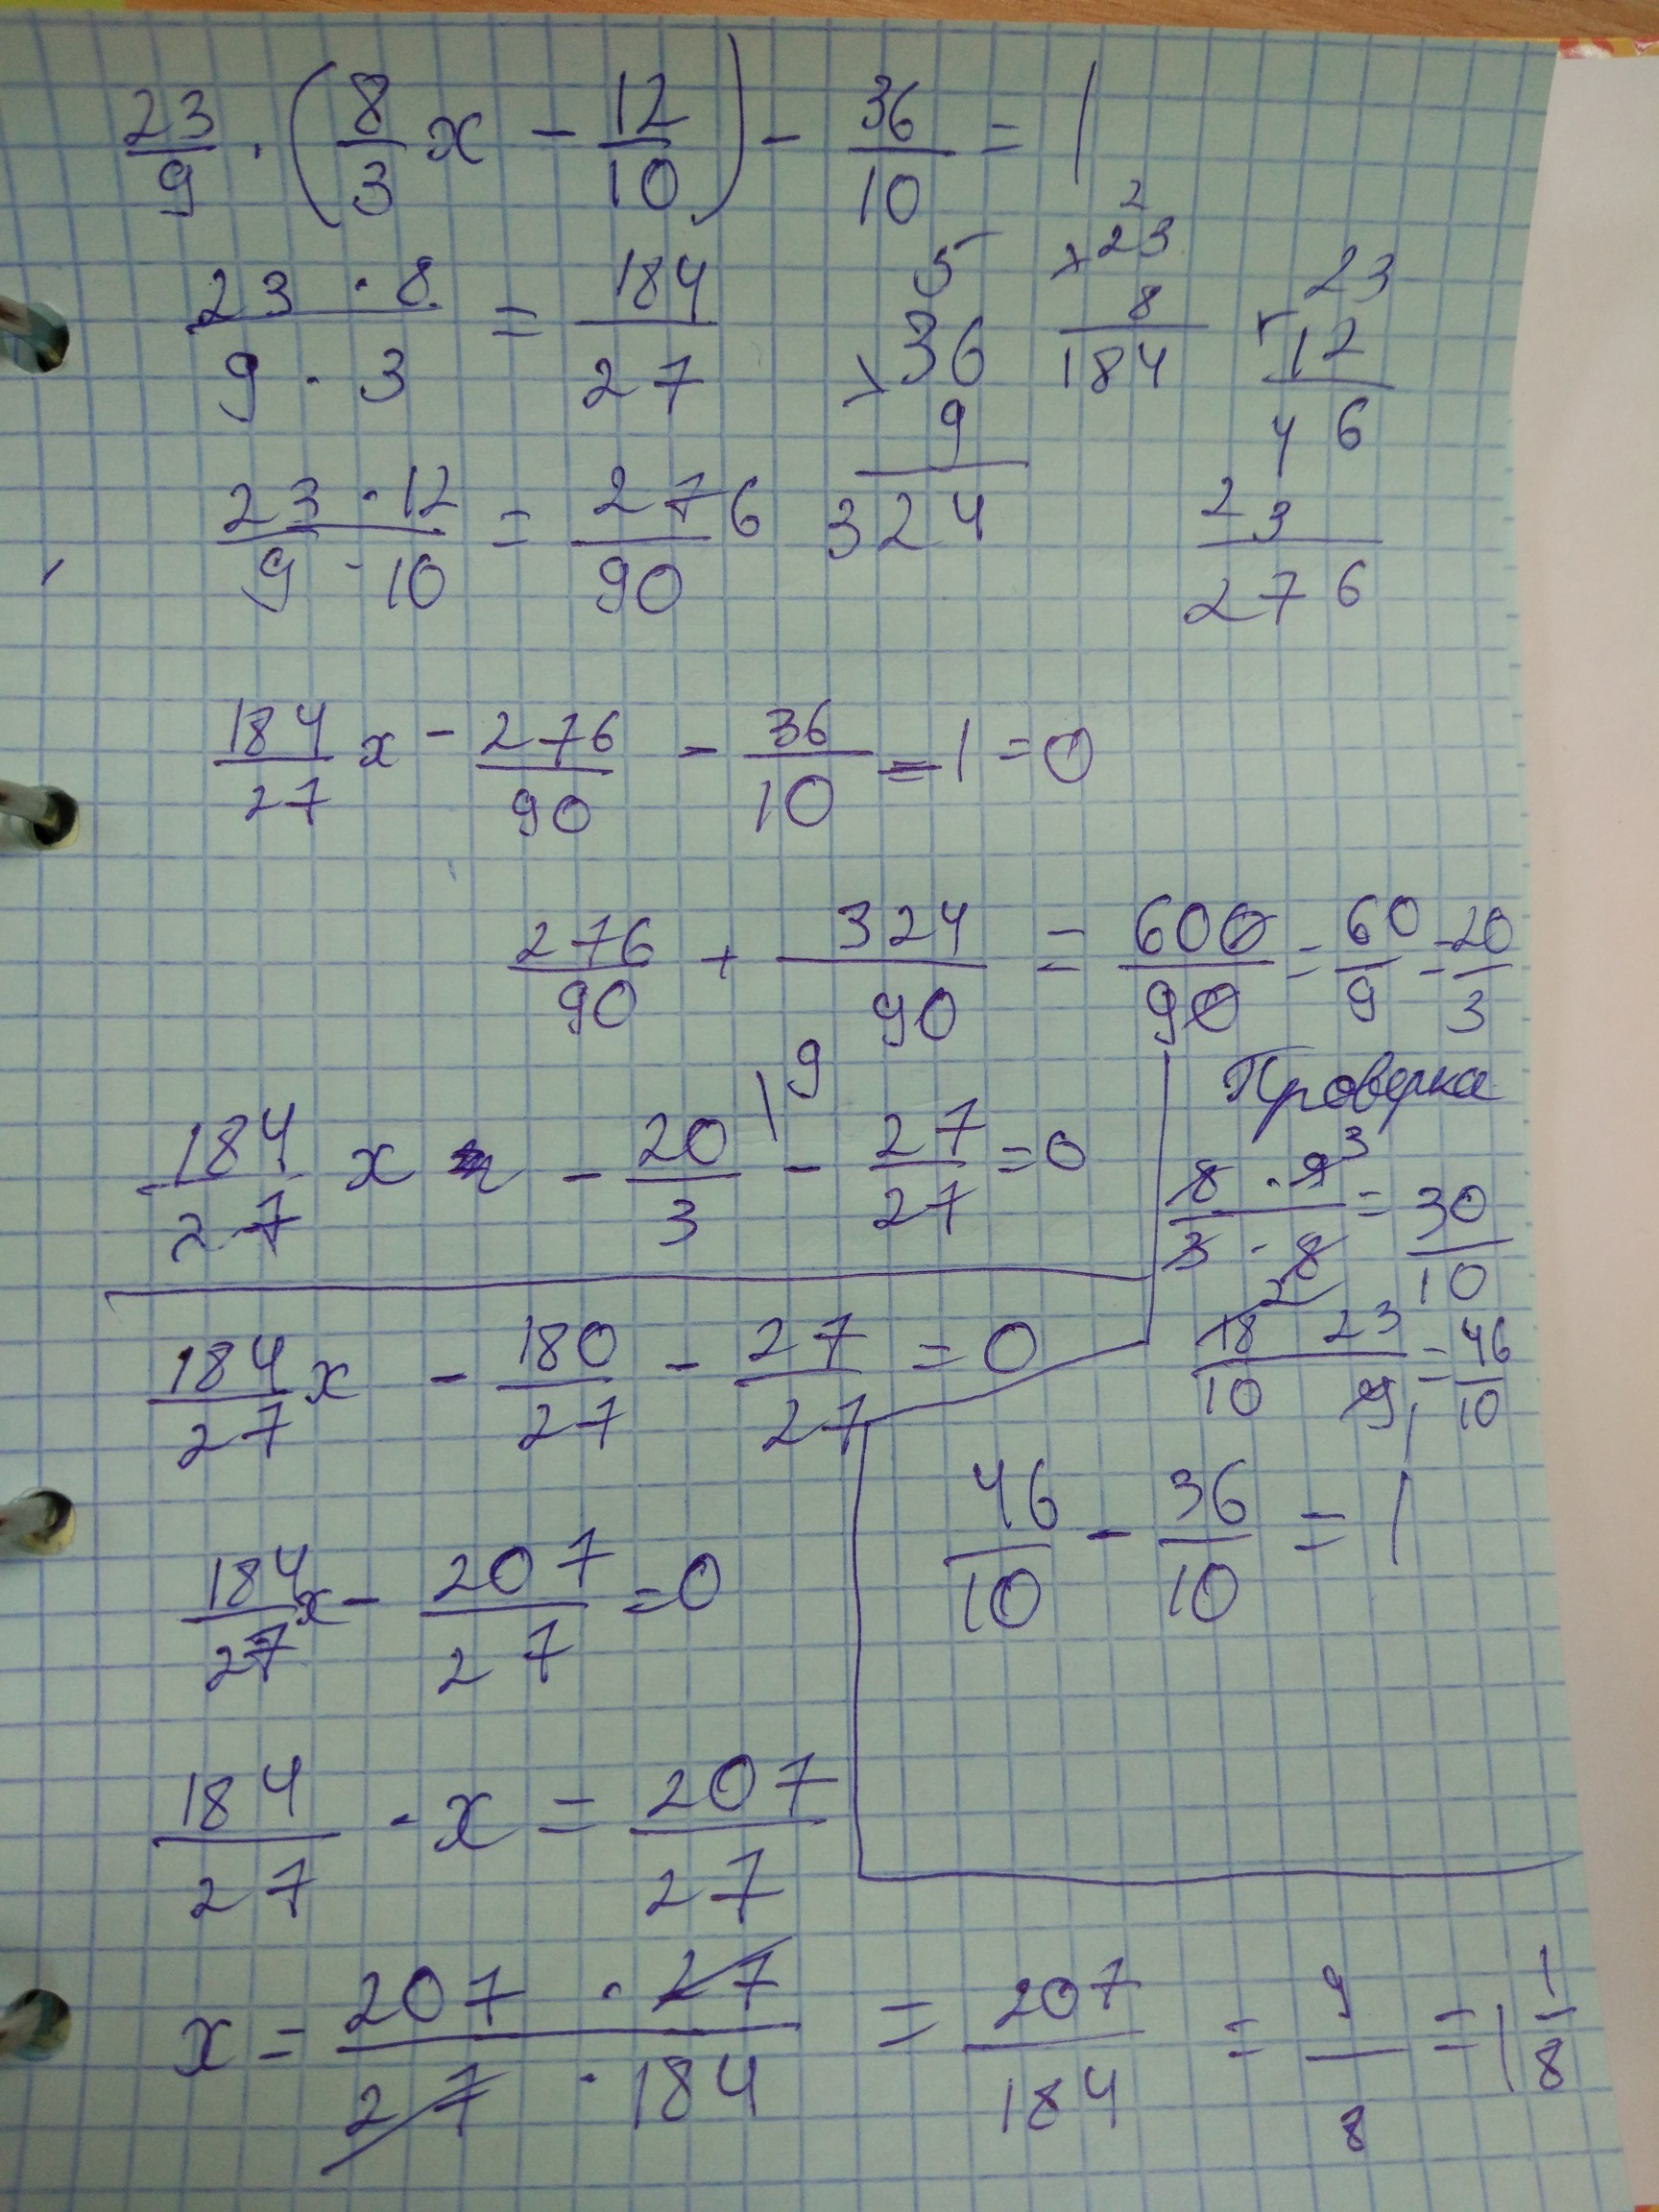 23/9 · (8/3 x - 12/10) - 36/10 = 1
23 · 8 / 9 · 3 = 184/27
5
36
× 9
324
2
× 23
8
184
23
12
46
23
276
23 · 12 / 9 · 10 = 276/90
184/27 x - 276/90 - 36/10 - 1 = 0
276/90 + 324/90 = 600/90 = 60/9 = 20/3
184/27 x - 20/3 \9 - 27/27 = 0
184/27 x - 180/27 - 27/27 = 0
184/27 x - 207/27 = 0
184/27 · x = 207/27
x = 207 · 27 / 27 · 184 = 207/184 = 9/8 = 1 1/8
Проверка
8 · 9 3 / 3 · 8 = 30/10
18 2 23 / 10 9 1 = 46/10
46/10 - 36/10 = 1